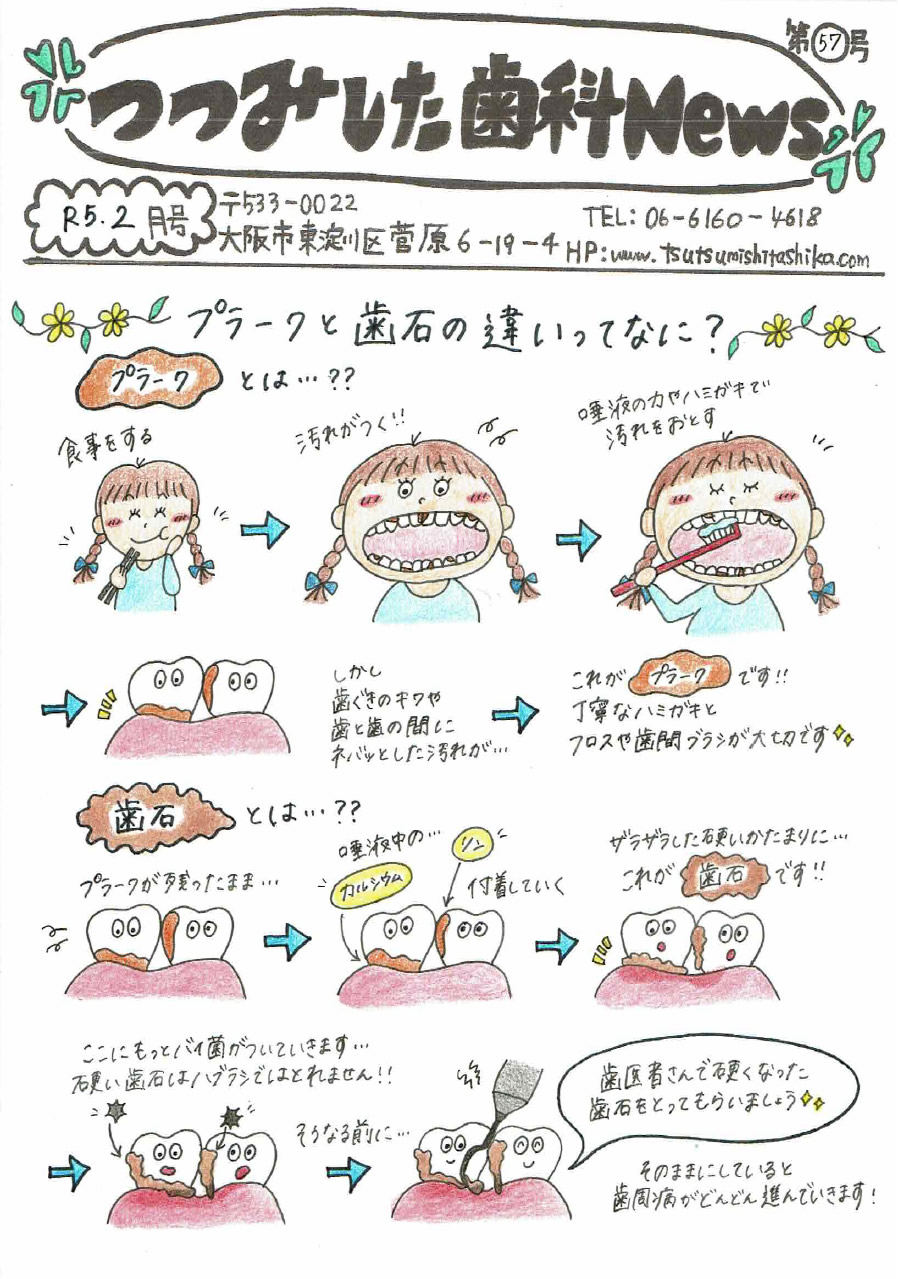 第57号
つつみした歯科News
R5.2月号
〒533-0022
大阪市東淀川区菅原6-19-4
TEL: 06-6160-4618
HP: www.tsutsumishitashika.com
プラークと歯石の違いってなに?
プラークとは…??
食事をする
汚れがつく!!
唾液の力やハミガキで
汚れをおとす
しかし
歯ぐきのキワや
歯と歯の間に
ネバッとした汚れが…
これがプラークです!!
丁寧なハミガキと
フロスや歯間ブラシが大切です
歯石とは…??
プラークが残ったまま…
唾液中の…
カルシウム
リン
付着していく
ザラザラした硬いかたまりに…
これが歯石です!!
ここにもっとバイ菌がついていきます…
硬い歯石はハブラシではとれません!!
そうなる前に…
歯医者さんで硬くなった
歯石をとってもらいましょう
そのままにしていると
歯周病がどんどん進んでいきます!